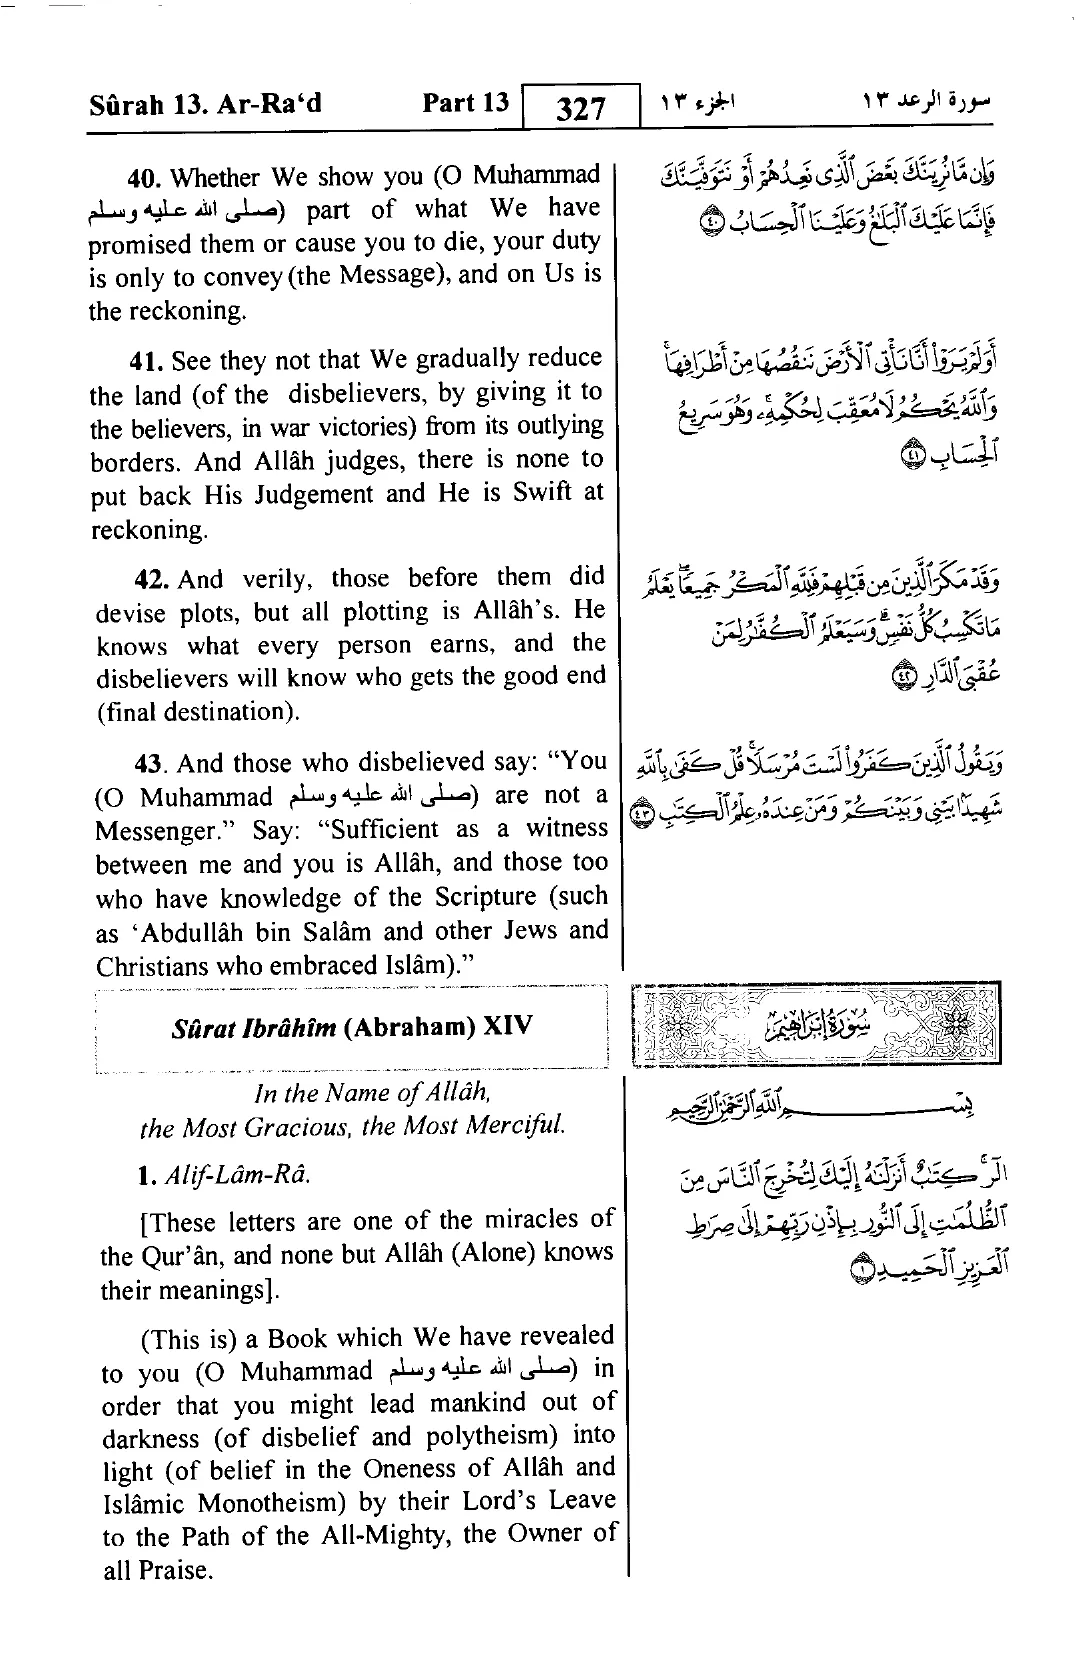 Sûrah 13. Ar-Ra‘d Part 13 327 الجزء ١٣ سورة الرعد ١٣
40. Whether We show you (O Muhammad
صلى الله عليه وسلم) part of what We have
promised them or cause you to die, your duty
is only to convey (the Message), and on Us is
the reckoning.
41. See they not that We gradually reduce
the land (of the disbelievers, by giving it to
the believers, in war victories) from its outlying
borders. And Allâh judges, there is none to
put back His Judgement and He is Swift at
reckoning.
42. And verily, those before them did
devise plots, but all plotting is Allâh’s. He
knows what every person earns, and the
disbelievers will know who gets the good end
(final destination).
43. And those who disbelieved say: “You
(O Muhammad صلى الله عليه وسلم) are not a
Messenger.” Say: “Sufficient as a witness
between me and you is Allâh, and those too
who have knowledge of the Scripture (such
as ‘Abdullâh bin Salâm and other Jews and
Christians who embraced Islâm).”
وَإِن مَّا نُرِيَنَّكَ بَعْضَ ٱلَّذِى نَعِدُهُمْ أَوْ نَتَوَفَّيَنَّكَ
فَإِنَّمَا عَلَيْكَ ٱلْبَلَـٰغُ وَعَلَيْنَا ٱلْحِسَابُ ٤٠
أَوَلَمْ يَرَوْا۟ أَنَّا نَأْتِى ٱلْأَرْضَ نَنقُصُهَا مِنْ أَطْرَافِهَا ۚ
وَٱللَّهُ يَحْكُمُ لَا مُعَقِّبَ لِحُكْمِهِۦ ۚ وَهُوَ سَرِيعُ
ٱلْحِسَابِ ٤١
وَقَدْ مَكَرَ ٱلَّذِينَ مِن قَبْلِهِمْ فَلِلَّهِ ٱلْمَكْرُ جَمِيعًا ۖ يَعْلَمُ
مَا تَكْسِبُ كُلُّ نَفْسٍ ۗ وَسَيَعْلَمُ ٱلْكُفَّـٰرُ لِمَنْ
عُقْبَى ٱلدَّارِ ٤٢
وَيَقُولُ ٱلَّذِينَ كَفَرُوا۟ لَسْتَ مُرْسَلًا ۚ قُلْ كَفَىٰ بِٱللَّهِ
شَهِيدًۢا بَيْنِى وَبَيْنَكُمْ وَمَنْ عِندَهُۥ عِلْمُ ٱلْكِتَـٰبِ ٤٣
Sûrat Ibrâhîm (Abraham) XIV
سُورَةُ إِبْرَاهِيمَ
In the Name of Allâh,
the Most Gracious, the Most Merciful.
1. Alif-Lâm-Râ.
[These letters are one of the miracles of
the Qur’ân, and none but Allâh (Alone) knows
their meanings].
(This is) a Book which We have revealed
to you (O Muhammad صلى الله عليه وسلم) in
order that you might lead mankind out of
darkness (of disbelief and polytheism) into
light (of belief in the Oneness of Allâh and
Islâmic Monotheism) by their Lord’s Leave
to the Path of the All-Mighty, the Owner of
all Praise.
بِسْمِ ٱللَّهِ ٱلرَّحْمَـٰنِ ٱلرَّحِيمِ
الٓر ۚ كِتَـٰبٌ أَنزَلْنَـٰهُ إِلَيْكَ لِتُخْرِجَ ٱلنَّاسَ مِنَ
ٱلظُّلُمَـٰتِ إِلَى ٱلنُّورِ بِإِذْنِ رَبِّهِمْ إِلَىٰ صِرَٰطِ
ٱلْعَزِيزِ ٱلْحَمِيدِ ١